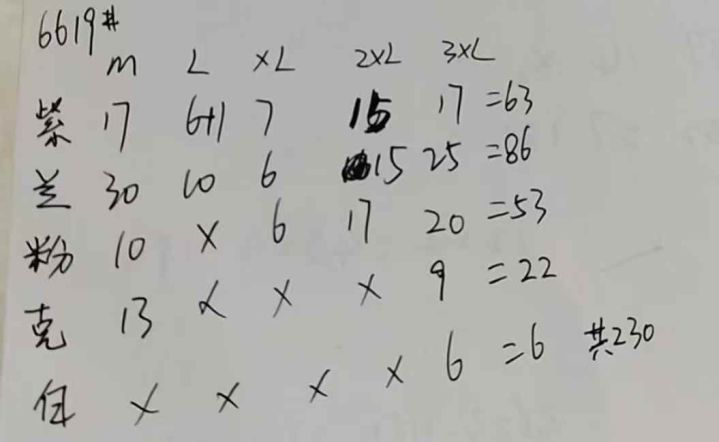 6619#
M L XL 2XL 3XL
紫 17 6+1 7 15 17 =63
兰 30 10 6 15 25 =86
粉 10 × 6 17 20 =53
克 13 × × × 9 =22
× × × × 6 =6 共230